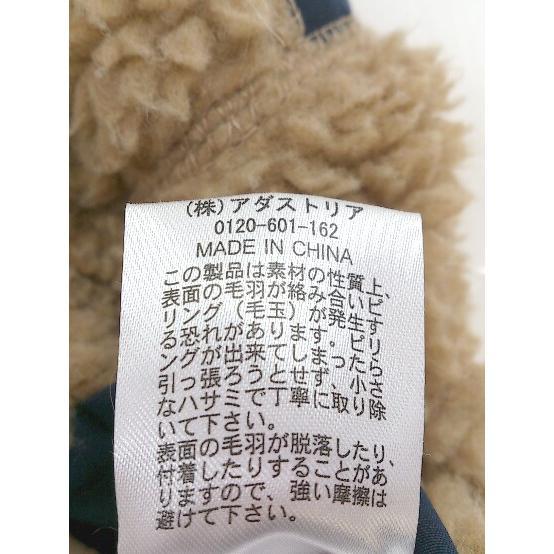 (株)アダストリア
0120-601-162
MADE IN CHINA
この製品は素材の性質上、
表面の毛羽が絡み合いピ
リング(毛玉)が発生す
る恐れがあります。ピリ
ングが出来てしまったら
引っ張ろうとせず、小さ
なハサミで丁寧に取り除
いて下さい。
表面の毛羽が脱落したり、
付着したりすることがあ
りますので、強い摩擦は
避けて下さい。